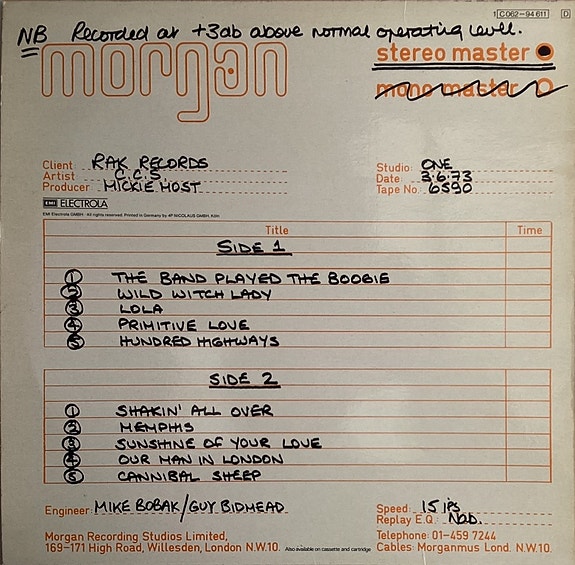 1C062-94 611 D
NB Recorded at +3db above normal operating level.
morgan
stereo master
mono master
Client RAK RECORDS
Artist C.C.S
Producer MICKIE MOST
Studio: ONE
Date: 3.6.73
Tape No. 6590
EMI ELECTROLA
EMI Electrola GMBH · All rights reserved. Printed in Germany by 4P NICOLAUS GMBH, Köln
Title Time
SIDE 1
1 THE BAND PLAYED THE BOOGIE
2 WILD WITCH LADY
3 LOLA
4 PRIMITIVE LOVE
5 HUNDRED HIGHWAYS
SIDE 2
1 SHAKIN' ALL OVER
2 MEMPHIS
3 SUNSHINE OF YOUR LOVE
4 OUR MAN IN LONDON
5 CANNIBAL SHEEP
Engineer: MIKE BOBAK/GUY BIDMEAD
Speed: 15 ips
Replay E.Q.: NAB.
Morgan Recording Studios Limited,
169-171 High Road, Willesden, London N.W.10.
Also available on cassette and cartridge
Telephone: 01-459 7244
Cables: Morganmus Lond. N.W.10.